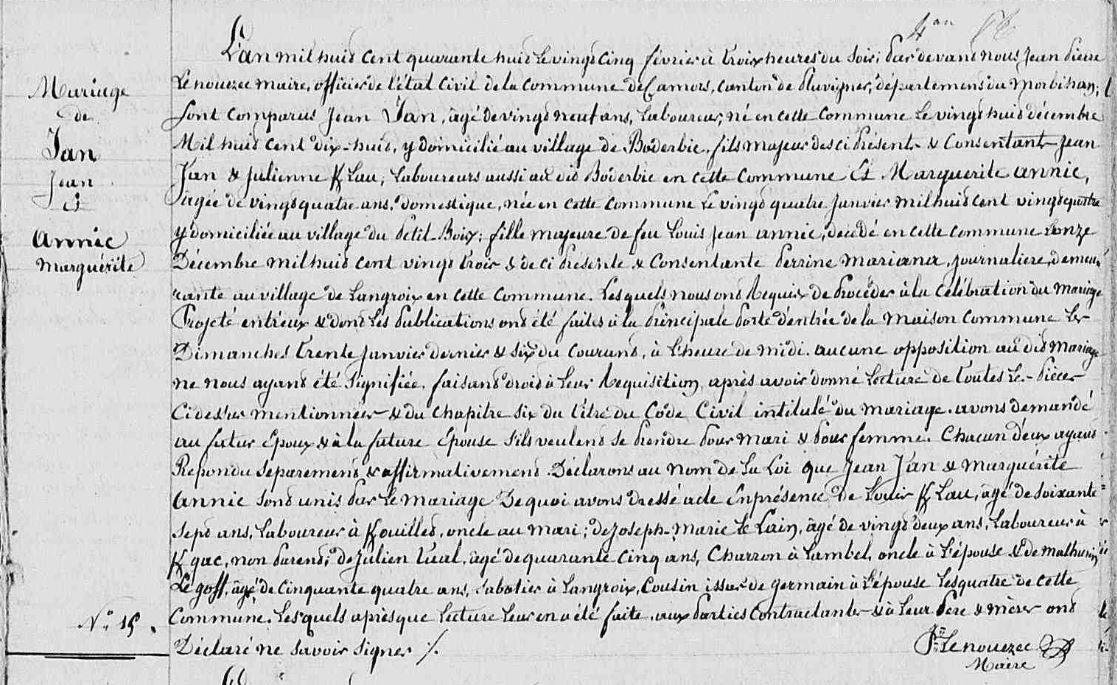 Mariage
de
Jan
Jean
et
Annic
Marguérite
N.º 15.
L'an mil huit cent quarante huit le vingt cinq février à trois heures du soir; par devant nous Jean Pierre
Lenouezec maire, officier de l'état civil de la commune de Camors, canton de Pluvigner, département du Morbihan;
sont comparus Jean Jan, âgé de vingt neuf ans, Laboureur, né en cette Commune le vingt huit décembre
Mil huit cent dix-huit, y domicilié au village de Boderbic, fils majeur des ci présents & Consentants Jean
Jan & Julienne K/Lau, Laboureurs aussi au dit Boderbic en cette commune Et Marguerite annic,
âgée de vingt quatre ans, domestique, née en cette commune le vingt quatre Janvier mil huit cent vingt quatre
y domiciliée au village du Petit-Bois; fille majeure de feu Louis Jean annic, décédé en cette commune Lonze
Décembre mil huit cent vingt trois & de ci présente & Consentante Perrine Mariana, Journalière, demeu-
rante au village de Langroix en cette Commune. Lesquels nous ont Requis de Procéder à la Célébration du mariage
Projeté entr'eux & dont les Publications ont été faites à la Principale Porte d'entrée de la Maison Commune les
Dimanches trente Janvier dernier & six du Courant, à l'heure de midi. aucune opposition au dit mariage
ne nous ayant été signifiée, faisant droit à leur Requisition, après avoir donné Lecture de toutes les Pièces
Ci dessus mentionnées & du chapitre six du titre du Code Civil intitulé du mariage. avons demandé
au futur Epoux & à la future Epouse s'ils veulent se Prendre Pour Mari & Pour femme. Chacun d'eux ayant
Repondu séparément & affirmativement Déclarons au nom de la Loi que Jean Jan & Marguérite
Annic sont unis Par le mariage De quoi avons dressé acte En présence de Louis K/Lau, âgé de soixante
sept ans, Laboureur à K/ouilled, oncle au mari; de Joseph-Marie le Lain, âgé de vingt deux ans, Laboureur à
K/gac, non Parent; de Julien tual, âgé de quarante cinq ans, Charron à Lambel, oncle à l'épouse & de Mathurin
Le goff, âgé de Cinquante quatre ans, Sabotier à Langroix, Cousin issus de germain à l'épouse Lesquatre de cette
Commune. Lesquels après que Lecture Leur en a été faite, aux Parties Contractantes & à Leur Père & mères ont
Déclaré ne savoir signer ./.
Lenouezec
Maire